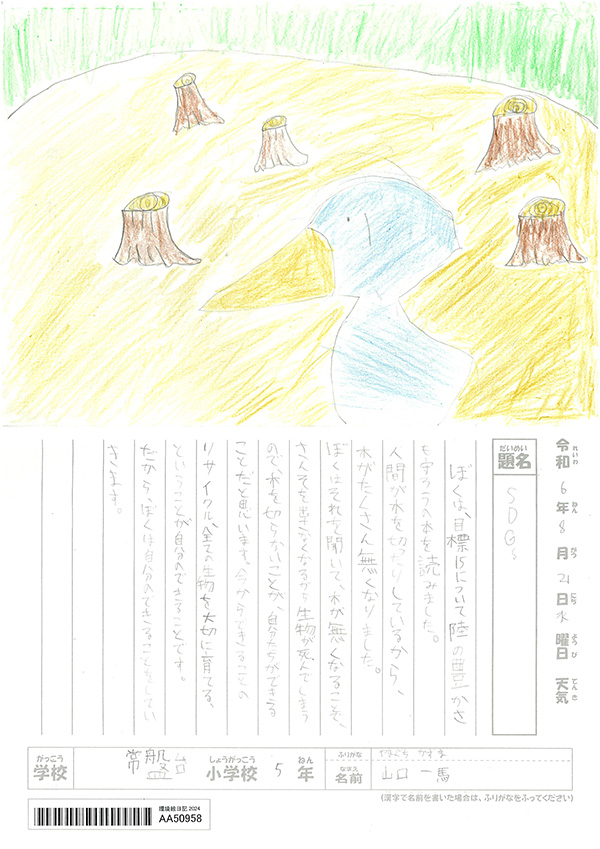 令和6年8月21日水曜日 天気
れいわ ねん がつ にち ようび てんき
だいめい
題名
SDGs
ぼくは、目標15について陸の豊かさ
を守ろうの本を読みました。
人間が木を切ったりしているから、
木がたくさん無くなりました。
ぼくはそれを聞いて、木が無くなることで、
さんそを出さなくなるから生物が死んでしまう
ので、木を切らないことが、自分たちができる
ことだと思います。今からできることの
リサイクル、全ての生物を大切に育てる、
ということが自分のできることです。
だから、ぼくは自分のできることをしてい
きます。
がっこう しょうがっこう ねん
学校 常盤台小学校 5年
ふりがな やまぐち かずま
なまえ
名前 山口 一馬
(漢字で名前を書いた場合は、ふりがなをふってください)
環境絵日記 2024
AA50958